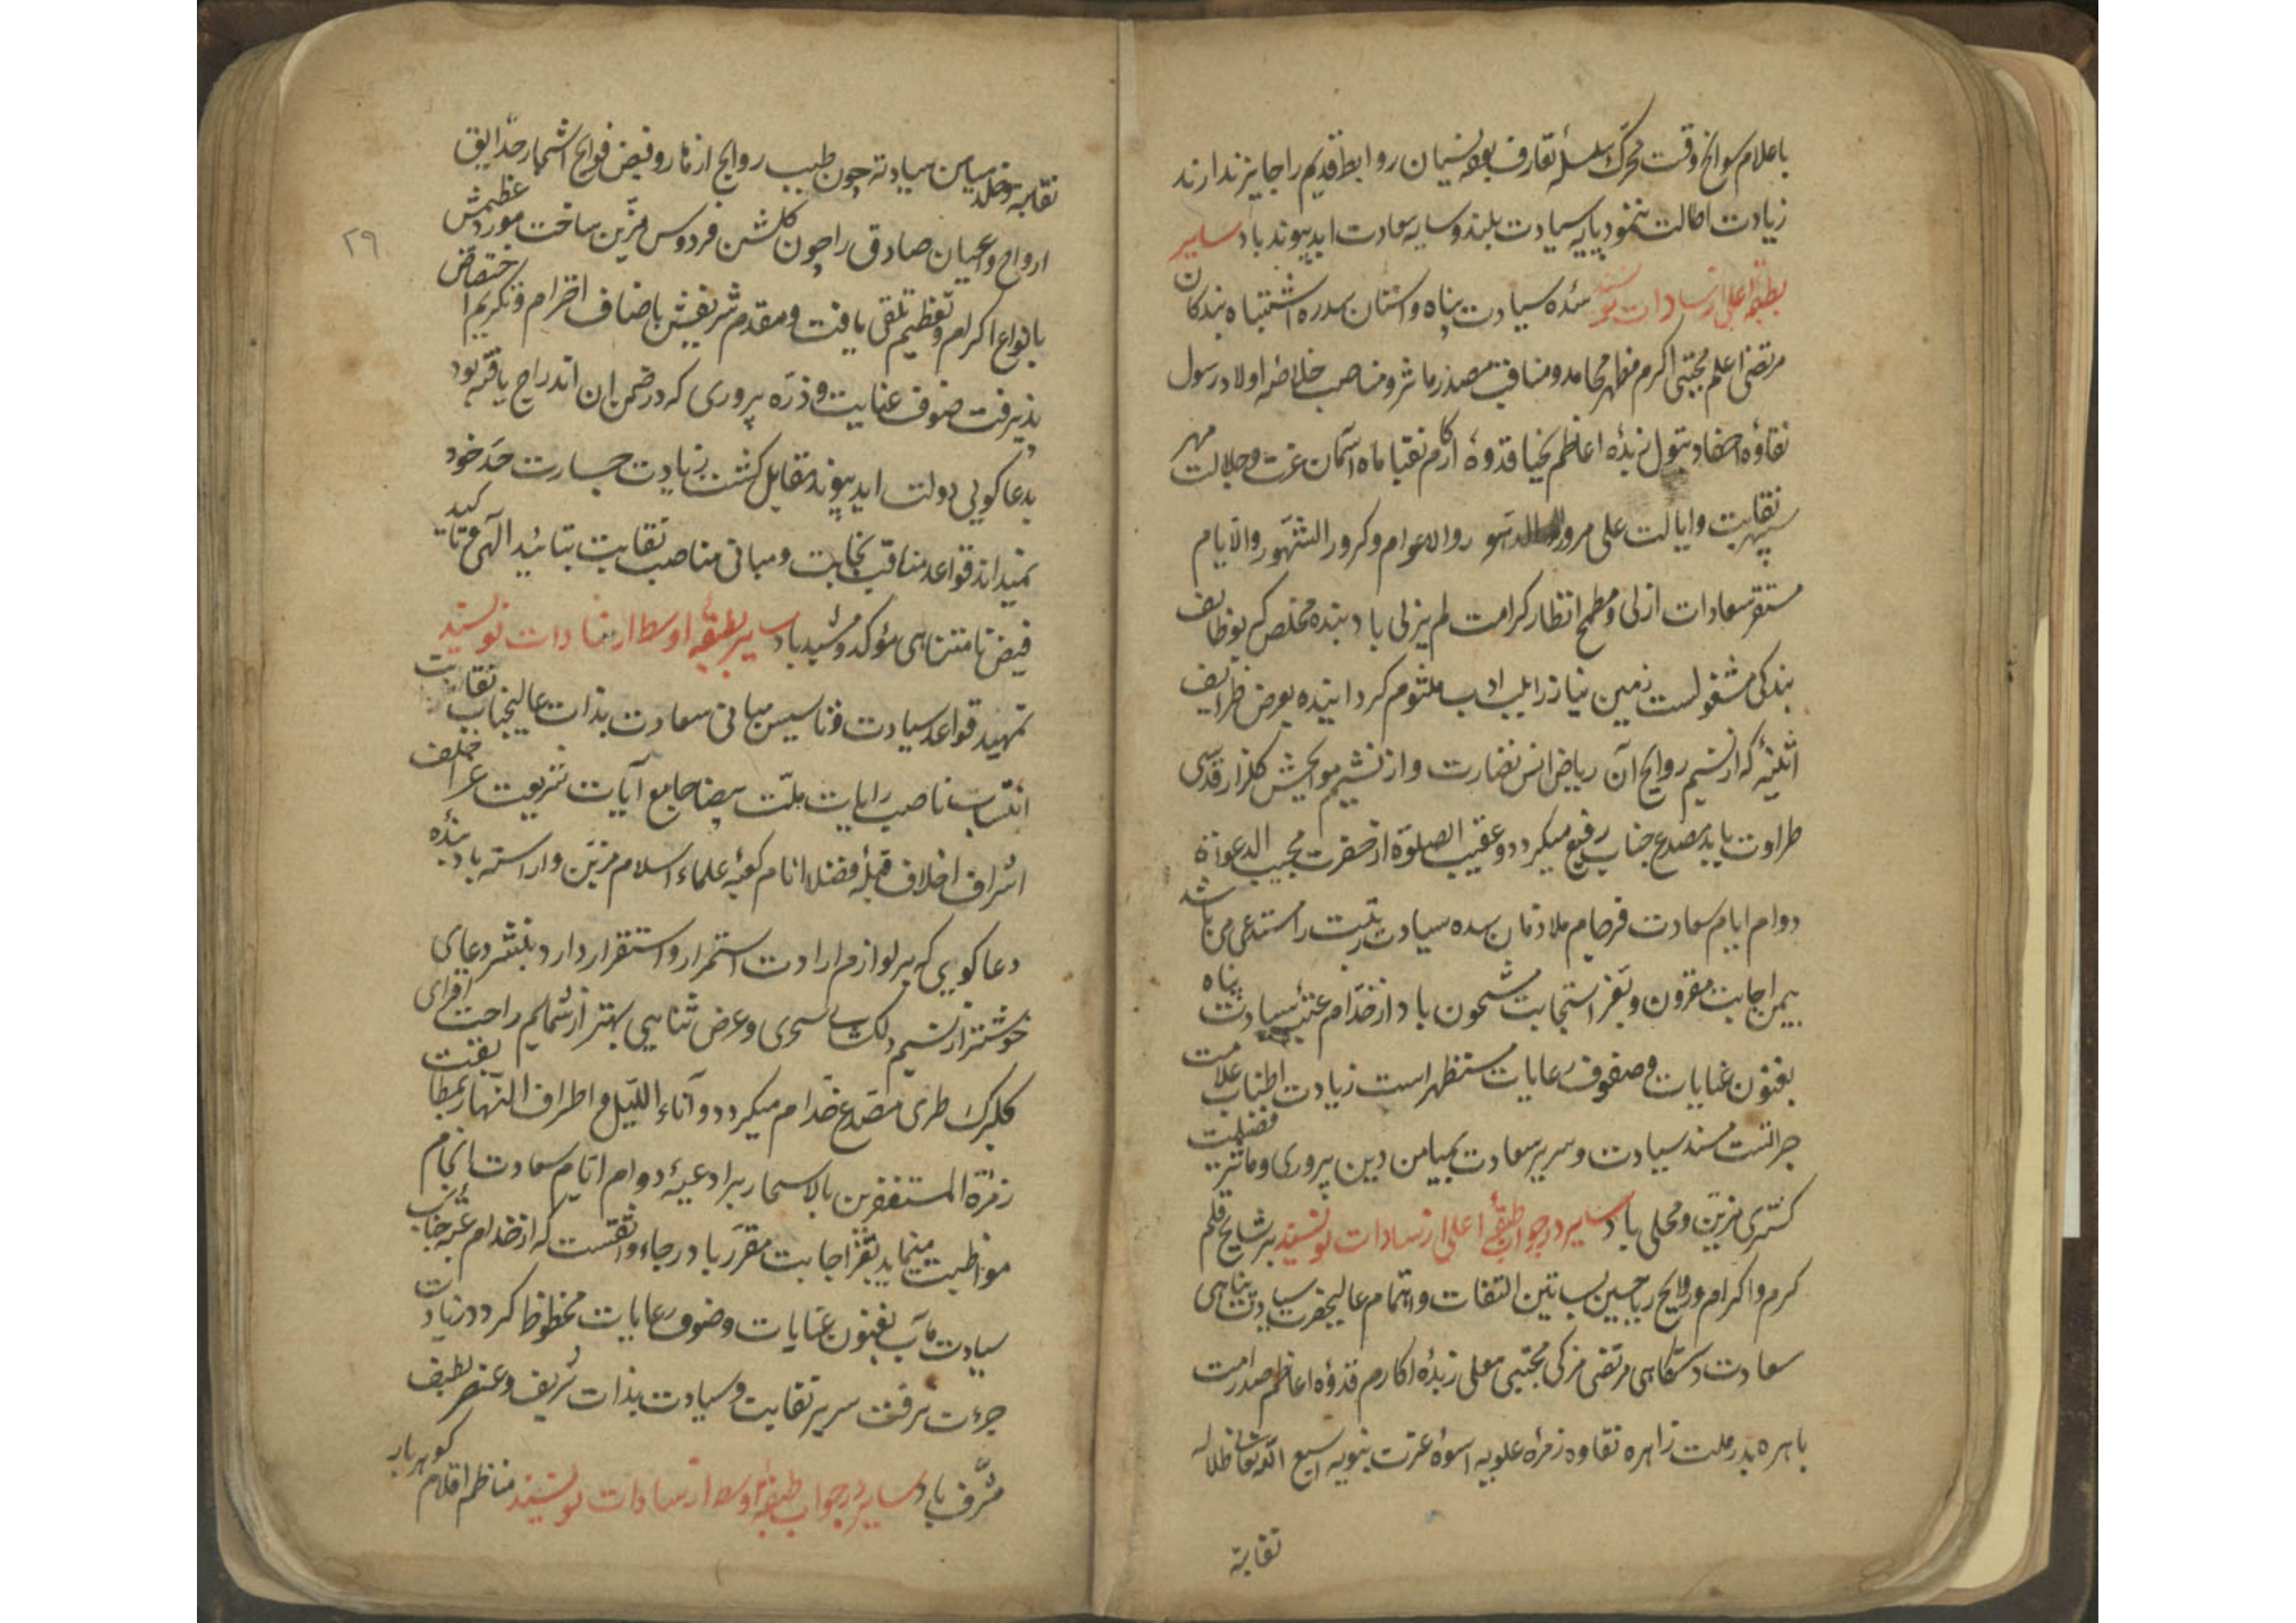 باعلام سوانح وقت محرک سلسلهٔ تعارف بوده نسیمان روابط قدیم را جایز ندارند
زیادت اطالت ننمود پایه سیادت بلند و سایه سعادت ابد پیوند باد سایر
بطبقه اعلی از سادات نویسند سده سیادت پناه و آستان سدره اشتباه بندکان
مرتضی اعلم مجتبی اکرم مظهر محامد و مناقب مصدر مآثر و مناصب خلاصهٔ اولاد رسول
نقاوهٔ احفاد بتول زبدهٔ اعاظم نجبا قدوهٔ اکارم نقبا ماه آسمان عزت و جلالت مهر
سپهر نقابت و ایالت علی مرور الدهور والاعوام وکرور الشهور والایام
مستقر سعادات ازلی و مطمح انظار کرامت لم یزلی باد بنده مخلص که بوظایف
بندکی مشغولست زمین نیاز را بلب ادب ملثوم کردانیده بعرض ظرایف
اثنیهٔ که از نسیم روایح آن ریاض انس نضارت و از نشیم فوایحش کلزار قدسی
طراوت یابد مصدع جناب رفیع میکردد و عقیب الصلوة از حضرت مجیب الدعوات
دوام ایام سعادت فرجام ملازمان سده سیادت رتبت را مستدعی می باشد
بیمن اجابت مقرون و بفر استجابت مشحون باد از خدام عتبهٔ سیادت پناه
بفنون عنایات و صفوف رعایات مستظهر است زیادت اطناب علامت
جراتست مسند سیادت و سریر سعادت بمیامن دین پروری و مآثر فضیلت
کستری مزین و محلی باد سایر در جواب طبقهٔ اعلی از سادات نویسند برشایح قلم
کرم و اکرام و روایح ریاحین بساتین التفات و اهتمام عالیحضرت سیادت پناهی
سعادت دستکاهی مرتضی مزکی مجتبی معلی زبدهٔ اکارم قدوهٔ اعاظم صدر امت
باهره بدر ملت زاهره نقاوه زمرهٔ علویه اسوهٔ عترت نبویه اسبغ الله تعالی ظلال
نقابته
نقابته وخلد میامن سیادته چون طیب روایح ازهار و فیض فوایح اشجار حدایق
ارواح و اعیان صادق را چون کلشن فردوس مزین ساخت مورد عظیمش
بانواع اکرام و تعظیم تلقی یافت و مقدم شریفش باضاف احترام و تکریم اختصاص
پذیرفت صنوف عنایت و ذره پروری که در ضمن آن اندراج یافته بود
بدعا کویی دولت ابد پیوند مقابل کشت زیادت جسارت حد خود
نمیداند قواعد مناقب نجابت و مبانی مناصب نقابت بتائید الهی و تاکید
فیض نامتناهی مؤکد و مشید باد سایر بطبقهٔ اوسط از سادات نویسند
تمهید قواعد سیادت و تاسیس مبانی سعادت بذات عالیجناب نقابت
انتساب ناصب رایات ملت بیضا جامع آیات شریعت غرا خلف
اشراف اخلاف قبلهٔ فضلا انام کعبهٔ علماء اسلام مزین و آراسته باد بنده
دعا کویی که بر لوازم ارادت استمرار و استقرار دارد بنشر دعای
خوشتر از نسیم دلکش سحری و عرض ثنایی بهتر از شمایم راحت افزای
کلبرک طری مصدع خدام میکردد و آناء اللیل و اطراف النهار بمطابقت
زمرة المستغفرین بالاسحار بر ادعیهٔ دوام ایام سعادت انجام
مواظبت مینماید بفر اجابت مقرر باد رجاء واثقست که از خدام عتبه جناب
سیادت مآب بفنون عنایات و صنوف رعایات محظوظ کردد زیادت
جرءت نرفت سریر نقابت و سیادت بذات شریف و عنصر لطیف
مشرف باد سایر در جواب طبقهٔ اوسط از سادات نویسند مناظم اقلام کوهربار
۲۹